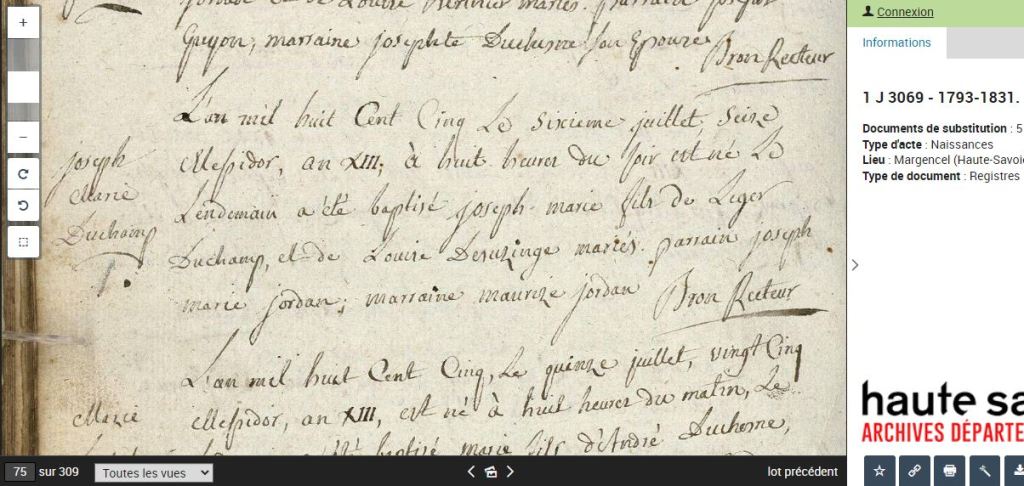 Guyon, marraine josephte Duchesne son Epouse Bron Recteur
L'an mil huit Cent Cinq Le Sixieme juillet, Seize
Messidor, an XIII; à huit heures du soir est né Le
Lendemain a été baptisé joseph-marie fils de Leger
Duchamp, et de Louise Desuzinge mariés. parrain joseph
marie jordan; marraine maurize jordan Bron Recteur
joseph
Marie
Duchamp
L'an mil huit Cent Cinq, Le quinze juillet, vingt Cinq
Messidor, an XIII, est né à huit heures du matin, Le
baptisé marie fils d'André Duchesne,
Marie
+
−
75 sur 309
Toutes les vues
lot précédent
Connexion
Informations
1 J 3069 - 1793-1831.
Documents de substitution : 5
Type d'acte : Naissances
Lieu : Margencel (Haute-Savoie
Type de document : Registres
haute sa
ARCHIVES DÉPARTE